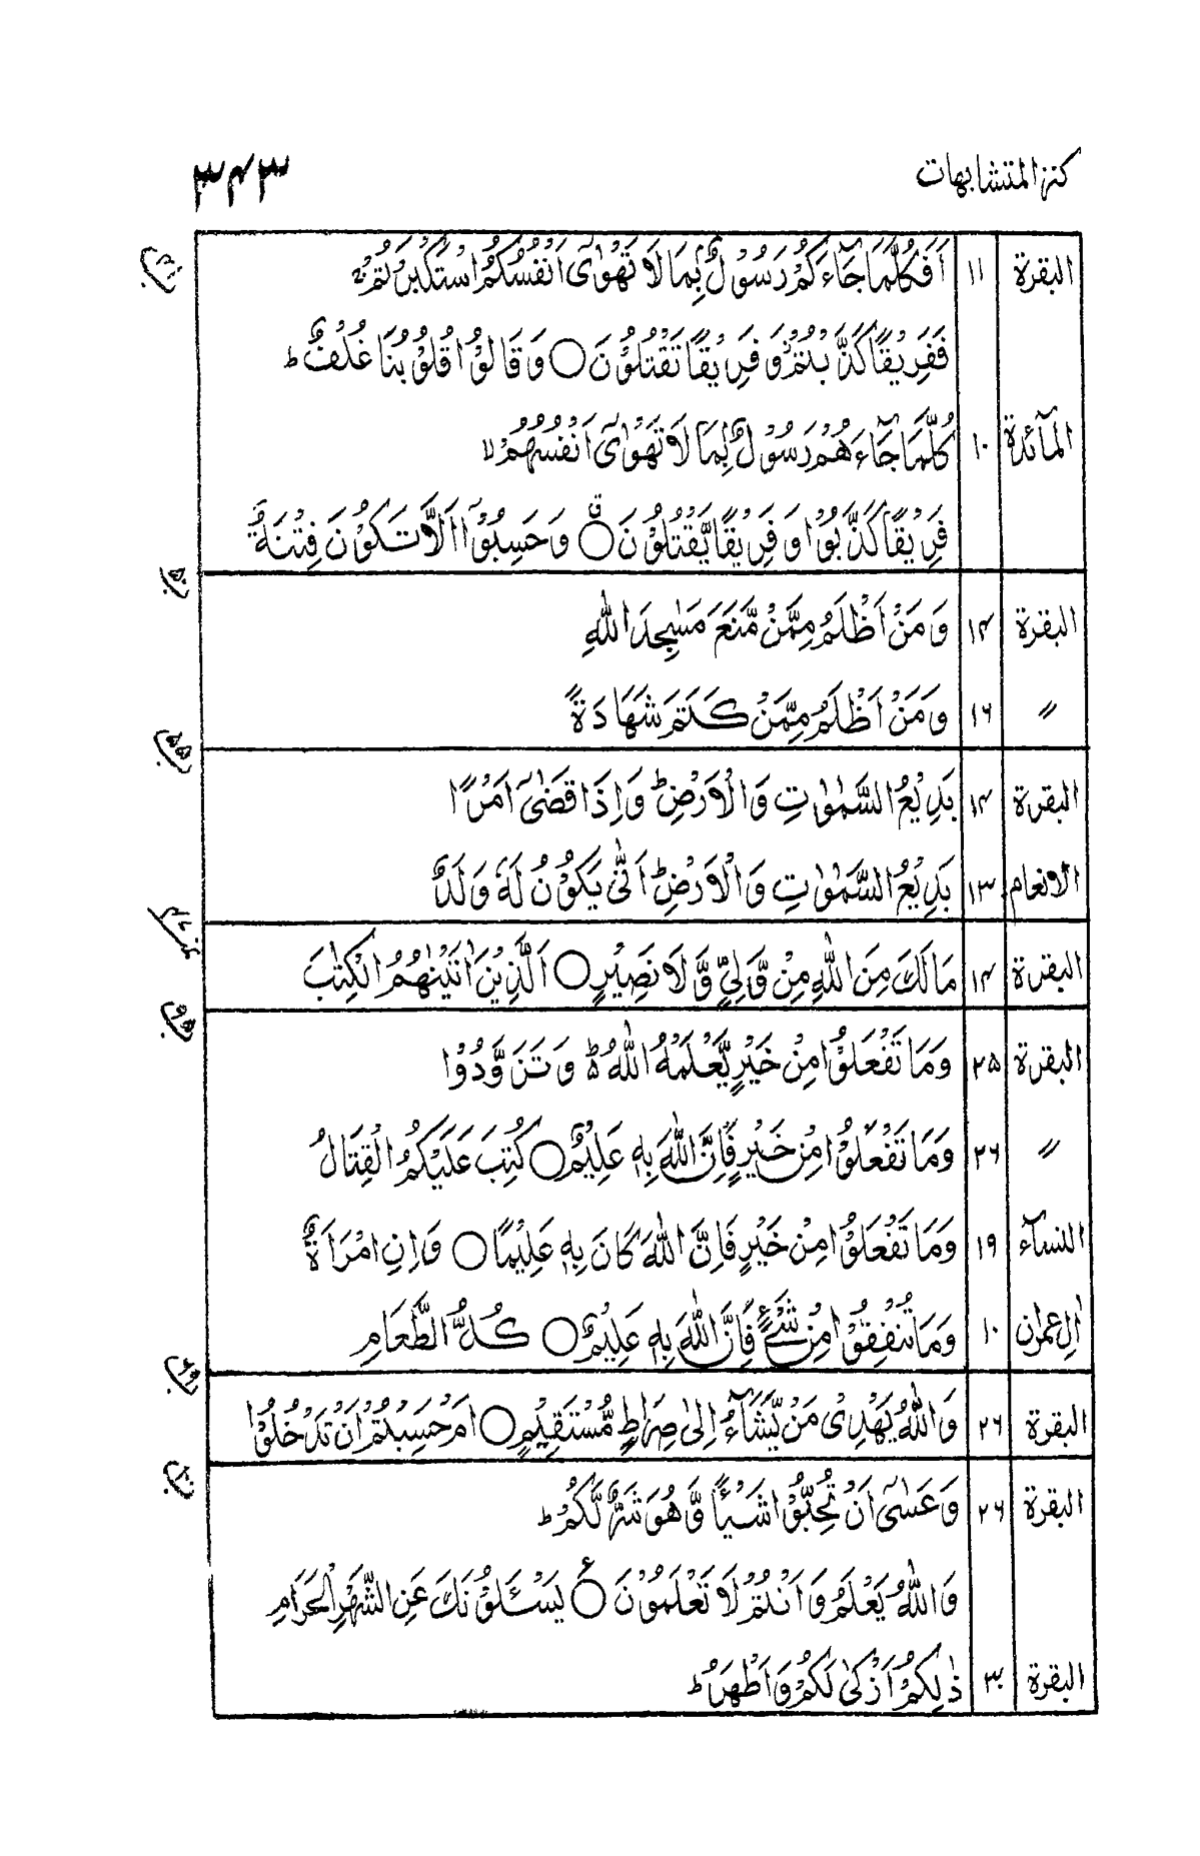 كنز المتشابهات ۳۴۳
البقرة ۱۱ اَفَكُلَّمَا جَآءَكُمْ رَسُوْلٌۢ بِمَا لَا تَهْوٰٓى اَنْفُسُكُمُ اسْتَكْبَرْتُمْ ۚ
فَفَرِيْقًا كَذَّبْتُمْ ۫ وَفَرِيْقًا تَقْتُلُوْنَ ○ وَقَالُوْا قُلُوْبُنَا غُلْفٌ ؕ
المآئدة ۱۰ كُلَّمَا جَآءَهُمْ رَسُوْلٌۢ بِمَا لَا تَهْوٰٓى اَنْفُسُهُمْ ۙ
فَرِيْقًا كَذَّبُوْا وَفَرِيْقًا يَّقْتُلُوْنَ ○ وَحَسِبُوْٓا اَلَّا تَكُوْنَ فِتْنَةٌ
البقرة ۱۴ وَمَنْ اَظْلَمُ مِمَّنْ مَّنَعَ مَسٰجِدَ اللّٰهِ
〃 ۱۶ وَمَنْ اَظْلَمُ مِمَّنْ كَتَمَ شَهَادَةً
البقرة ۱۴ بَدِيْعُ السَّمٰوٰتِ وَالْاَرْضِ ؕ وَاِذَا قَضٰٓى اَمْرًا
الانعام ۱۳ بَدِيْعُ السَّمٰوٰتِ وَالْاَرْضِ ؕ اَنّٰى يَكُوْنُ لَهٗ وَلَدٌ
البقرة ۱۴ مَا لَكَ مِنَ اللّٰهِ مِنْ وَّلِيٍّ وَّلَا نَصِيْرٍ ○ اَلَّذِيْنَ اٰتَيْنٰهُمُ الْكِتٰبَ
البقرة ۲۵ وَمَا تَفْعَلُوْا مِنْ خَيْرٍ يَّعْلَمْهُ اللّٰهُ ؕ وَتَزَوَّدُوْا
〃 ۲۶ وَمَا تَفْعَلُوْا مِنْ خَيْرٍ فَاِنَّ اللّٰهَ بِهٖ عَلِيْمٌ ○ كُتِبَ عَلَيْكُمُ الْقِتَالُ
النسآء ۱۹ وَمَا تَفْعَلُوْا مِنْ خَيْرٍ فَاِنَّ اللّٰهَ كَانَ بِهٖ عَلِيْمًا ○ وَاِنِ امْرَاَةٌ
اٰل عمرٰن ۱۰ وَمَا تُنْفِقُوْا مِنْ شَيْءٍ فَاِنَّ اللّٰهَ بِهٖ عَلِيْمٌ ○ كُلُّ الطَّعَامِ
البقرة ۲۶ وَاللّٰهُ يَهْدِيْ مَنْ يَّشَآءُ اِلٰى صِرَاطٍ مُّسْتَقِيْمٍ ○ اَمْ حَسِبْتُمْ اَنْ تَدْخُلُوا
البقرة ۲۶ وَعَسٰٓى اَنْ تُحِبُّوْا شَيْـًٔا وَّهُوَ شَرٌّ لَّكُمْ ؕ
وَاللّٰهُ يَعْلَمُ وَاَنْتُمْ لَا تَعْلَمُوْنَ ○ ع يَسْـَٔلُوْنَكَ عَنِ الشَّهْرِ الْحَرَامِ
البقرة ۳۰ ذٰلِكُمْ اَزْكٰى لَكُمْ وَاَطْهَرُ ؕ